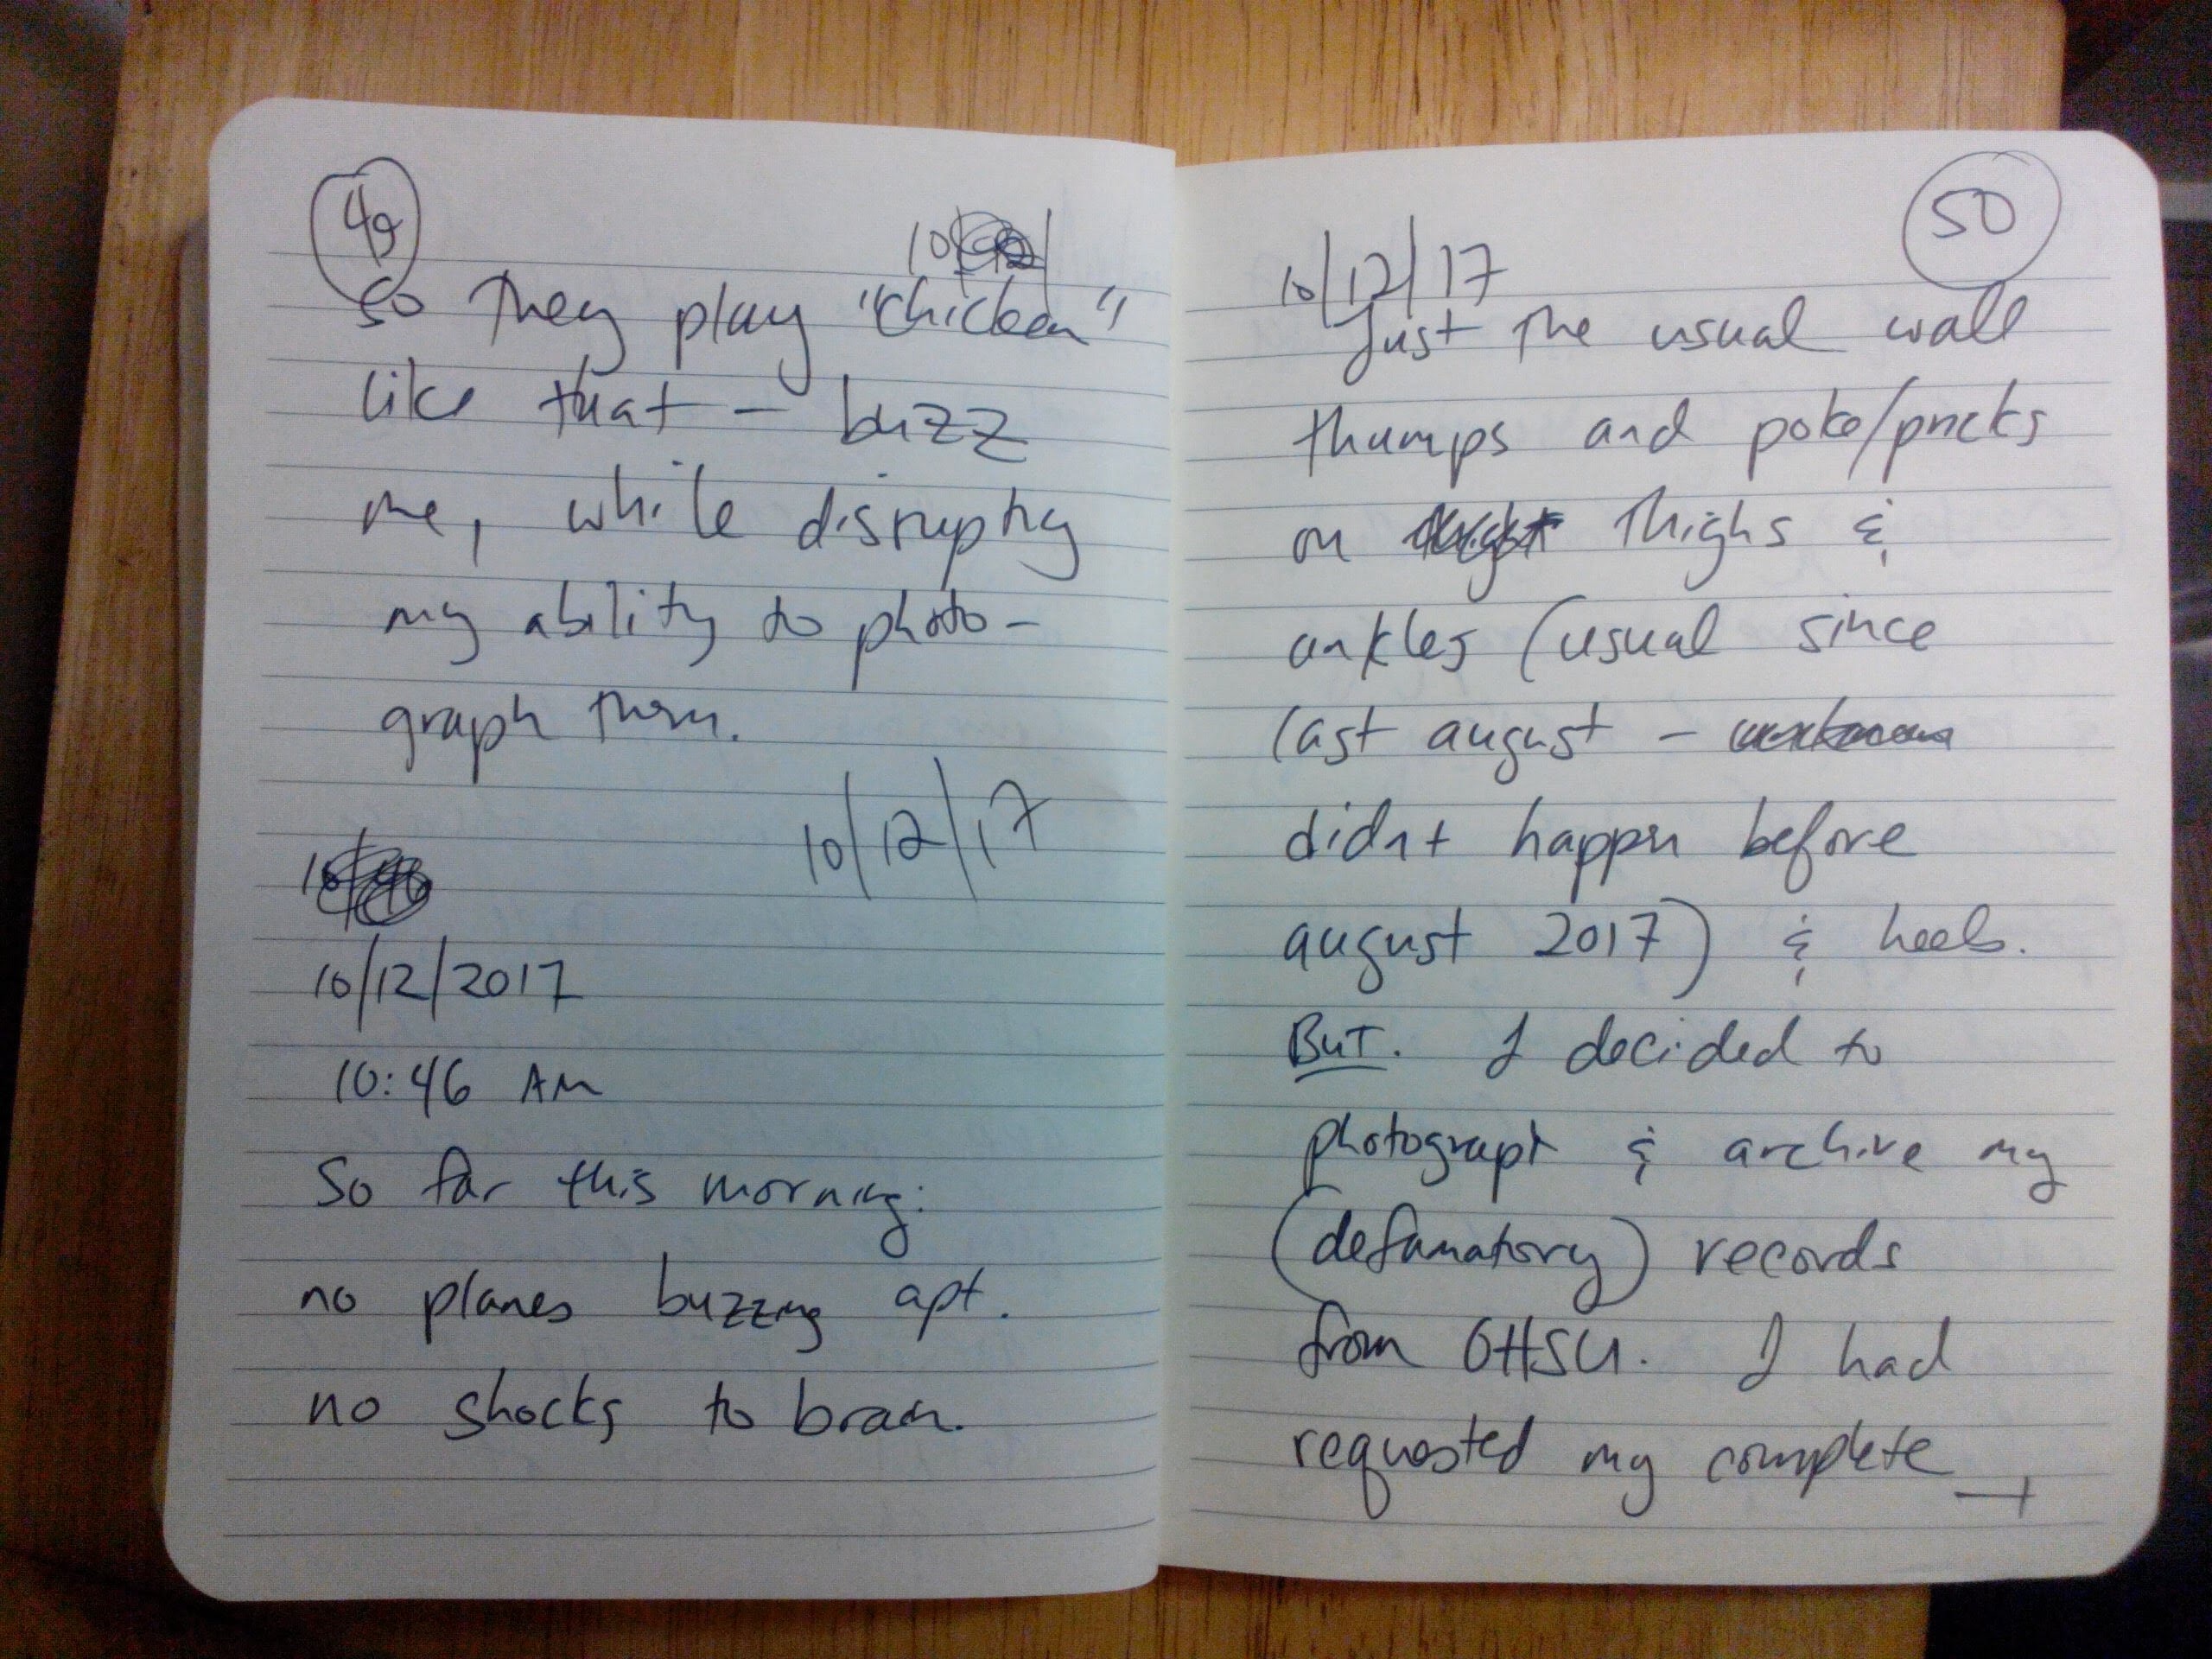 49
10/
So They play "chicken"
like that – buzz
me, while disrupting
my ability to photo-
graph them.
10/12/17
10/12/2017
10:46 AM
So far this morning:
no planes buzzing apt.
no shocks to brain.
50
10/12/17
Just the usual wall
thumps and poke/pricks
on thighs &
ankles (usual since
last august –
didnt happen before
august 2017) & heels.
BUT. I decided to
photograph & archive my
(defamatory) records
from OHSU. I had
requested my complete →